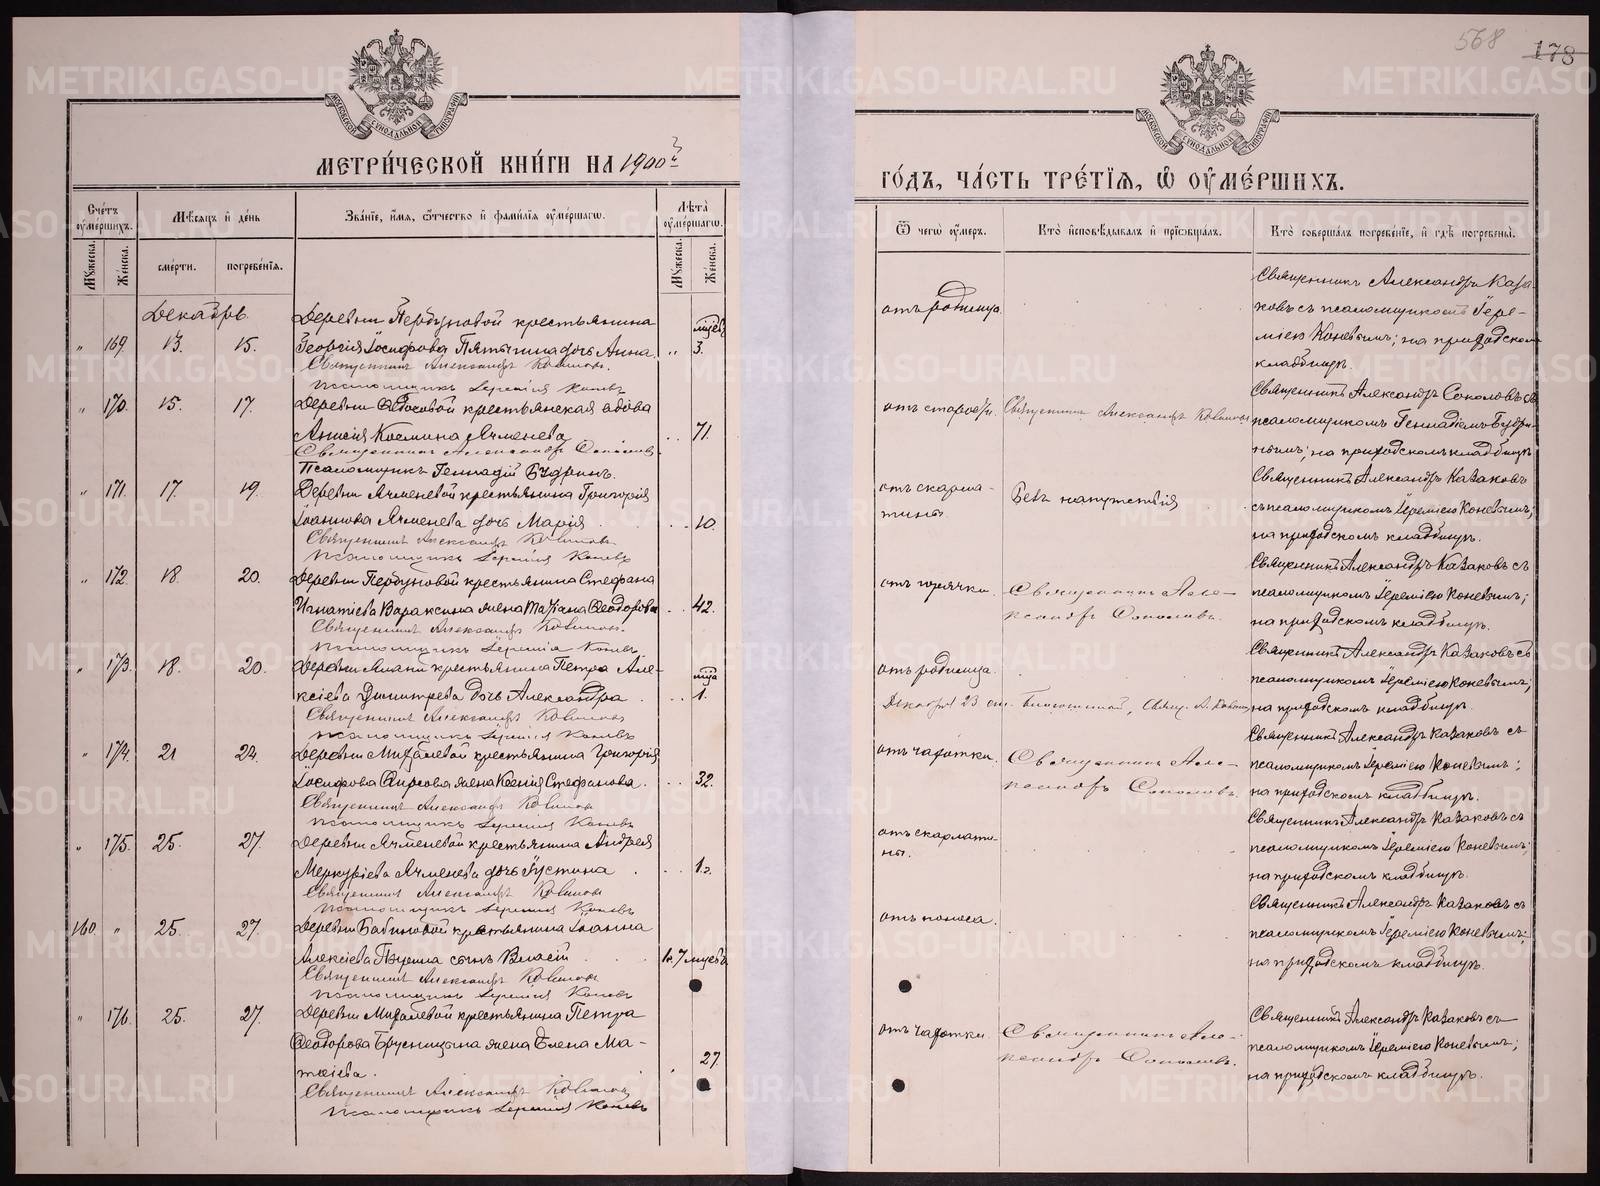 568
178
МЕТРИ́ЧЕСКОЙ КНИ́ГИ НА 1900й
ГО́ДЪ, ЧА́СТЬ ТРЕ́ТІѦ, Ѽ ОУ҆МЕ́РШИХЪ.
Сче́тъ оумершихъ.
Мѣ́сяцъ и҆ де́нь
Зва́ніе, и҆́мя, ѻ҆́тчество и҆ фами́лія оу҆ме́ршагѡ.
Лѣта̀ оумершагѡ.
Му́жеска.
Же́нска.
сме́рти.
погребе́нія.
Му́жеска.
Же́нска.
Ѿ чегѡ̀ оу҆́меръ.
Кто̀ и҆сповѣ́дывалъ и҆ прїѡбща́лъ.
Кто̀ соверша́лъ погребе́ніе, и҆ гдѣ̀ погребены̀.
Декабрь.
" 169. 13. 15.
Деревни Пербуновой крестьянина
Георгія Іосифова Пятыгина дочь Анна. " 3.
Священникъ Александръ Казаковъ.
Псаломщикъ Іеремія Коневъ
отъ родимца.
Священникъ Александръ Каза-
ковъ съ псаломщикомъ Іере-
міею Коневымъ; на приходскомъ
кладбищѣ.
" 170. 15. 17.
крестьянская вдова
Анисія Космина Ячменева . . 71.
Священникъ Александръ Соколовъ.
Псаломщикъ Геннадій Будринъ.
отъ старости.
Священникъ Александръ Казаковъ
Священникъ Александръ Соколовъ съ
псаломщикомъ Геннадіемъ Будри-
нымъ; на приходскомъ кладбищѣ
" 171. 17. 19.
Деревни Ячменевой крестьянина Григорія
Іоаннова Ячменева дочь Марія . . . 10.
Священникъ Александръ Казаковъ
Псаломщикъ Іеремія Коневъ
отъ скарла-
тины.
Безъ напутствія
Священникъ Александръ Казаковъ
съ псаломщикомъ Іереміею Коневымъ;
на приходскомъ кладбищѣ.
" 172. 18. 20.
Деревни Пербуновой крестьянина Стефана
Игнатіева Вараксина жена Татіана Ѳеодорова . . 42.
Священникъ Александръ Казаковъ.
Псаломщикъ Іеремія Коневъ
отъ горячки.
Священникъ Алек-
сандръ Соколовъ.
Священникъ Александръ Казаковъ съ
псаломщикомъ Іереміею Коневымъ;
на приходскомъ кладбищѣ.
" 173. 18. 20.
крестьянина Петра Але-
ксіева Димитрева дочь Александра . . . 1.
Священникъ Александръ Казаковъ
Псаломщикъ Іеремія Коневъ
отъ родимца.
Декабря 23
Священникъ Александръ Казаковъ съ
псаломщикомъ Іереміею Коневымъ;
на приходскомъ кладбищѣ.
" 174. 21 24.
Деревни Михалевой крестьянина Григорія
Іосифова жена Ксенія Стефанова. . . 32.
Священникъ Александръ Казаковъ
Псаломщикъ Іеремія Коневъ
отъ чахотки.
Священникъ Алек-
сандръ Соколовъ.
Священникъ Александръ Казаковъ съ
псаломщикомъ Іереміею Коневымъ;
на приходскомъ кладбищѣ.
" 175. 25. 27.
Деревни Ячменевой крестьянина Андрея
Меркуріева Ячменева дочь Іустина . . .
Священникъ Александръ Казаковъ
Псаломщикъ Іеремія Коневъ
отъ скарлати-
ны.
Священникъ Александръ Казаковъ съ
псаломщикомъ Іереміею Коневымъ;
на приходскомъ кладбищѣ.
160. " 25. 27.
Деревни Бабиновой крестьянина Іоанна
Алексіева сынъ Власій . . 7 мцевъ
Священникъ Александръ Казаковъ
Псаломщикъ Іеремія Коневъ
отъ поноса.
Священникъ Александръ Казаковъ съ
псаломщикомъ Іереміею Коневымъ;
на приходскомъ кладбищѣ.
" 176. 25. 27.
Деревни Михалевой крестьянина Петра
Ѳеодорова Брусницына жена Елена Ма-
тѳіева. 27.
Священникъ Александръ Казаковъ
Псаломщикъ Іеремія Коневъ
отъ чахотки.
Священникъ Алек-
сандръ Соколовъ.
Священникъ Александръ Казаковъ съ
псаломщикомъ Іереміею Коневымъ;
на приходскомъ кладбищѣ.
METRIKI.GASO-URAL.RU